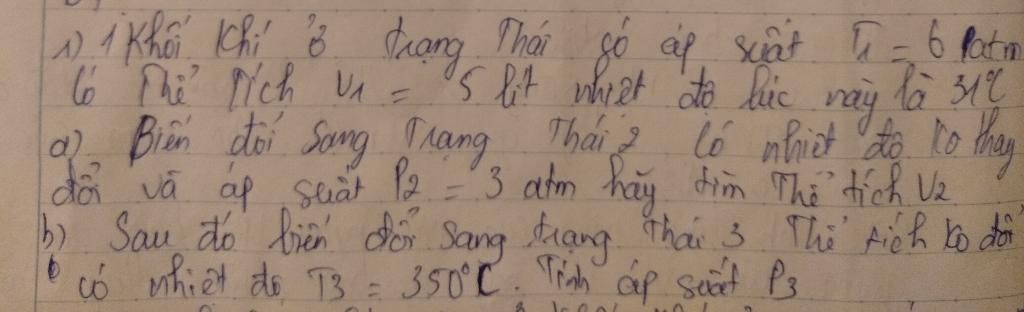 1) 1 Khối khí ở trạng Thái có áp suất T1 = 6 atm
Có Thể Tích V1 = 5 lít nhiệt độ lúc này là 31°C
a) Biến đổi Sang Trạng Thái 2 Có nhiệt độ ko thay
đổi và áp suất P2 = 3 atm hãy tìm Thể tích V2
b) Sau đó biến đổi Sang trạng Thái 3 Thể tích ko đổi
có nhiệt độ T3 = 350°C. Tính áp suất P3